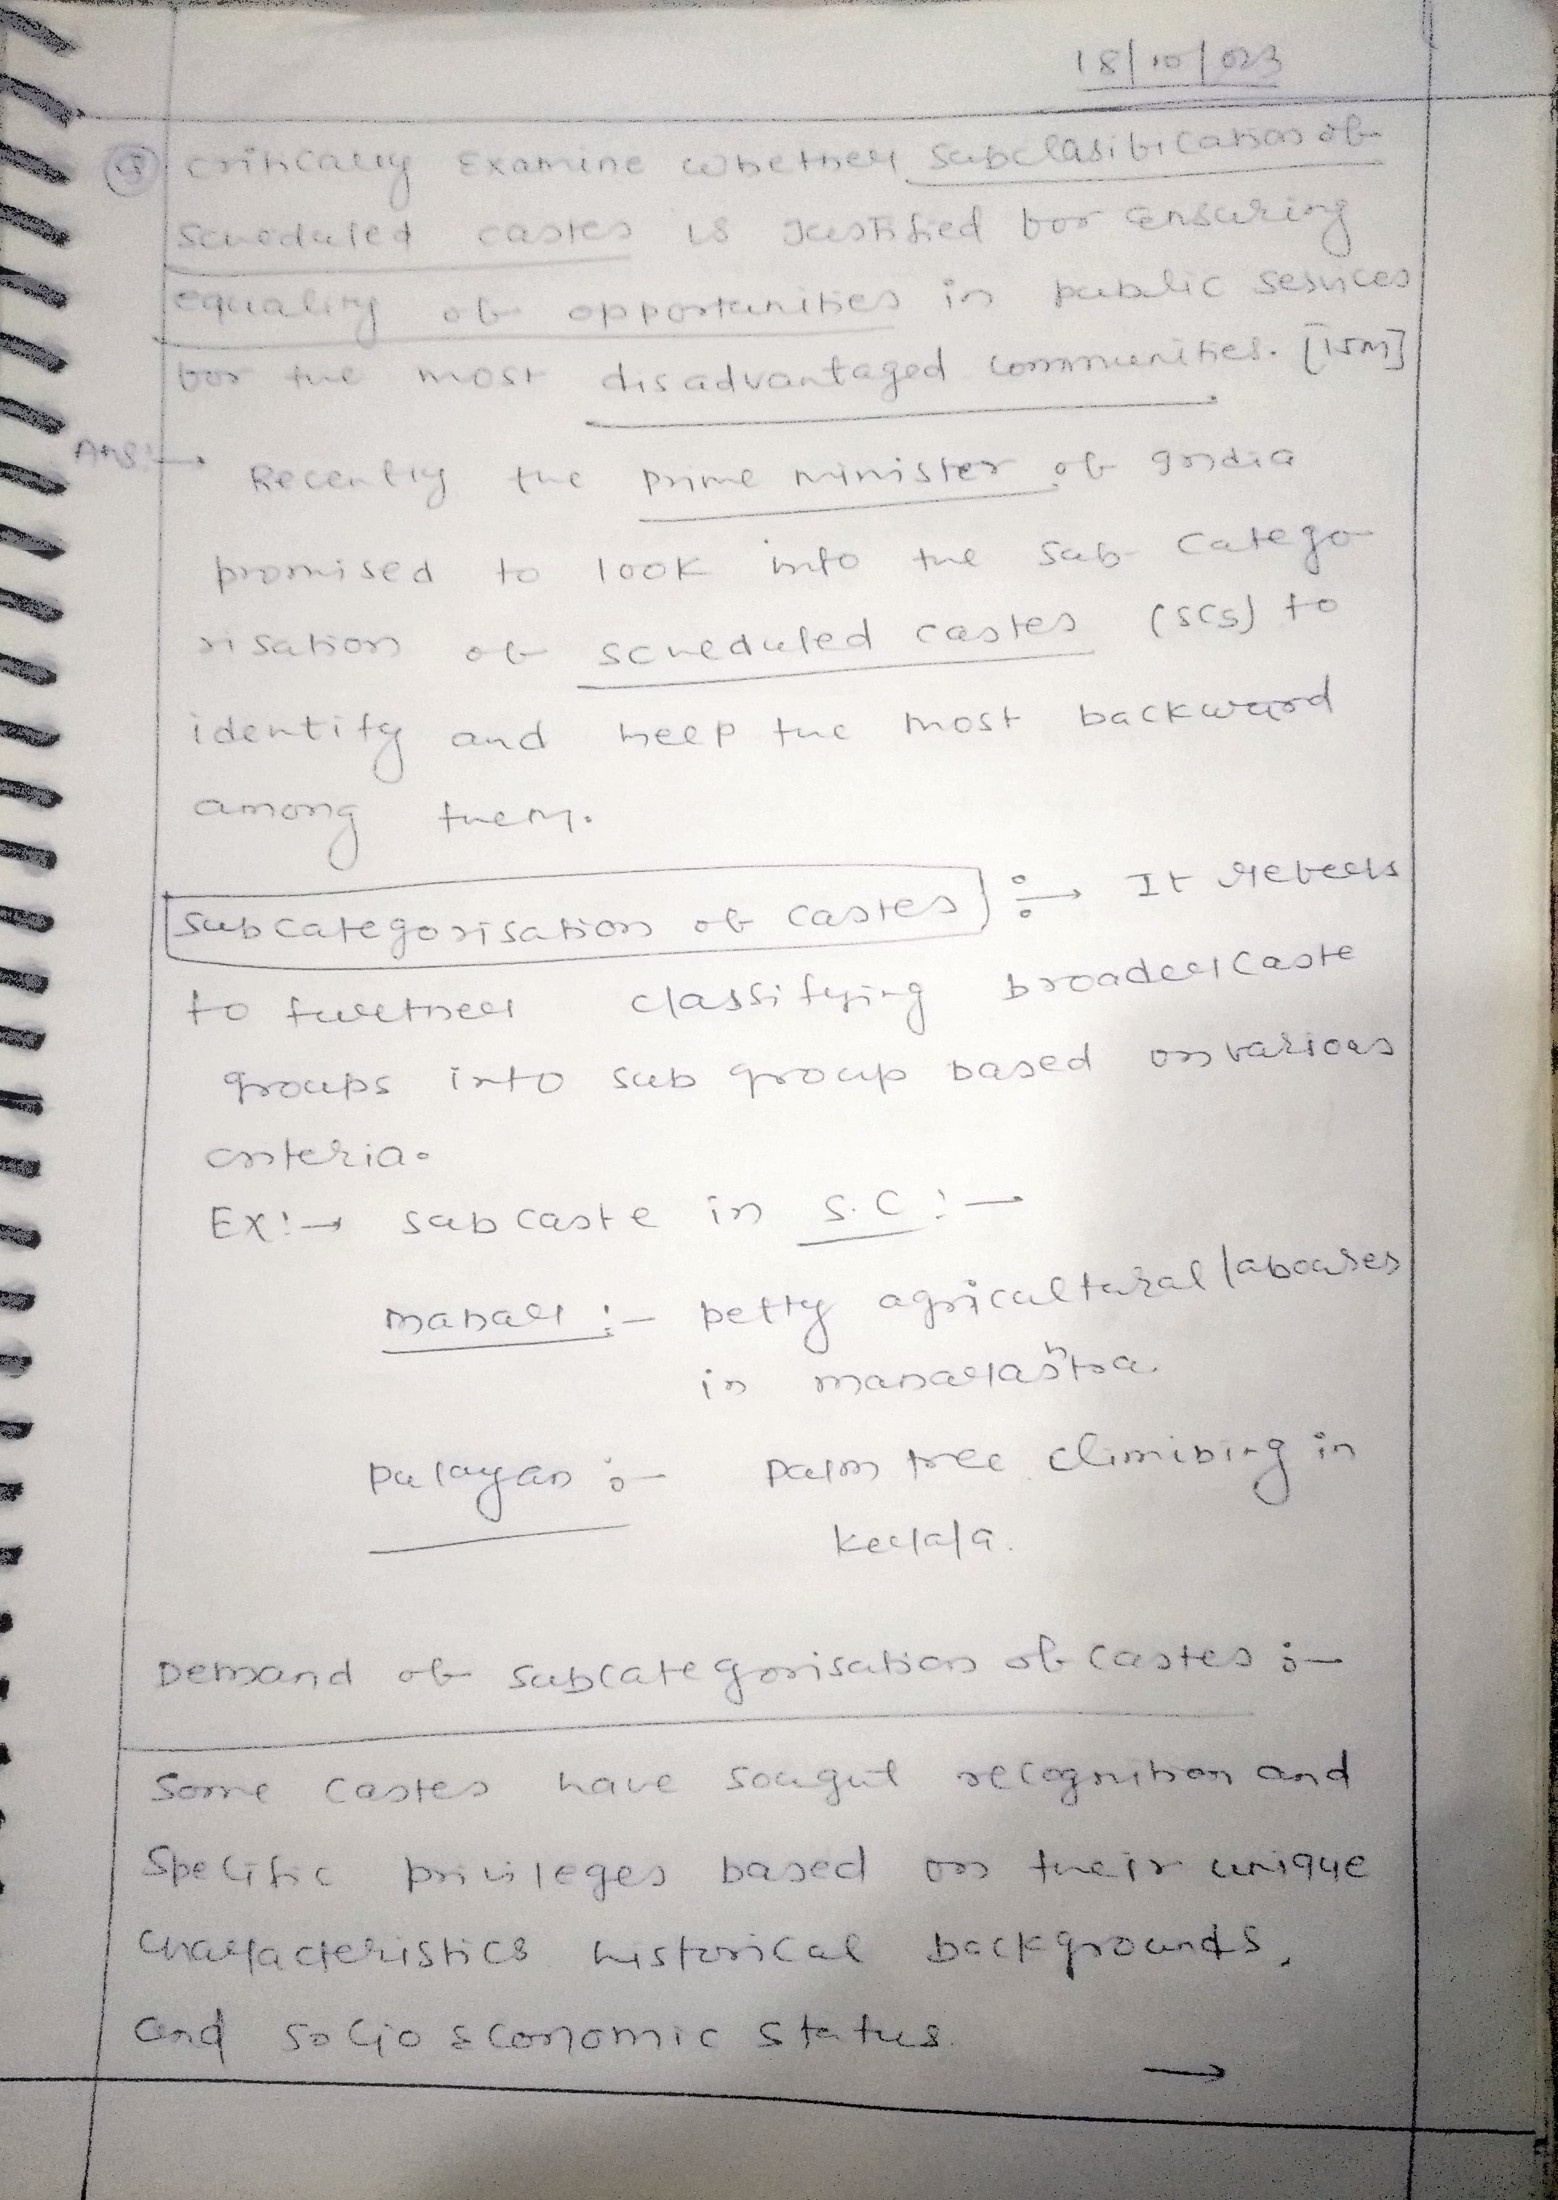 18/10/023
critically Examine whether subclasification of
scheduled castes is Justified for ensuring
equality of opportunities in public services
for the most disadvantaged communities. [15M]
Ans:→ Recently the prime minister of India
promised to look into the sub-catego
risation of scheduled castes (SCs) to
identify and help the most backward
among them.
Subcategorisation of castes :→ It refers
to further classifying broader caste
groups into sub group based on various
criteria.
EX:→ sub caste in S.C:→
mahar :- petty agricultural laboures
in maharashtra.
pulayan :- palm tree climibing in
kerala.
Demand of subcategorisation of castes :-
Some castes have sought recognition and
Specific privileges based on their unique
characteristics historical backgrounds,
and socio economic status.
→